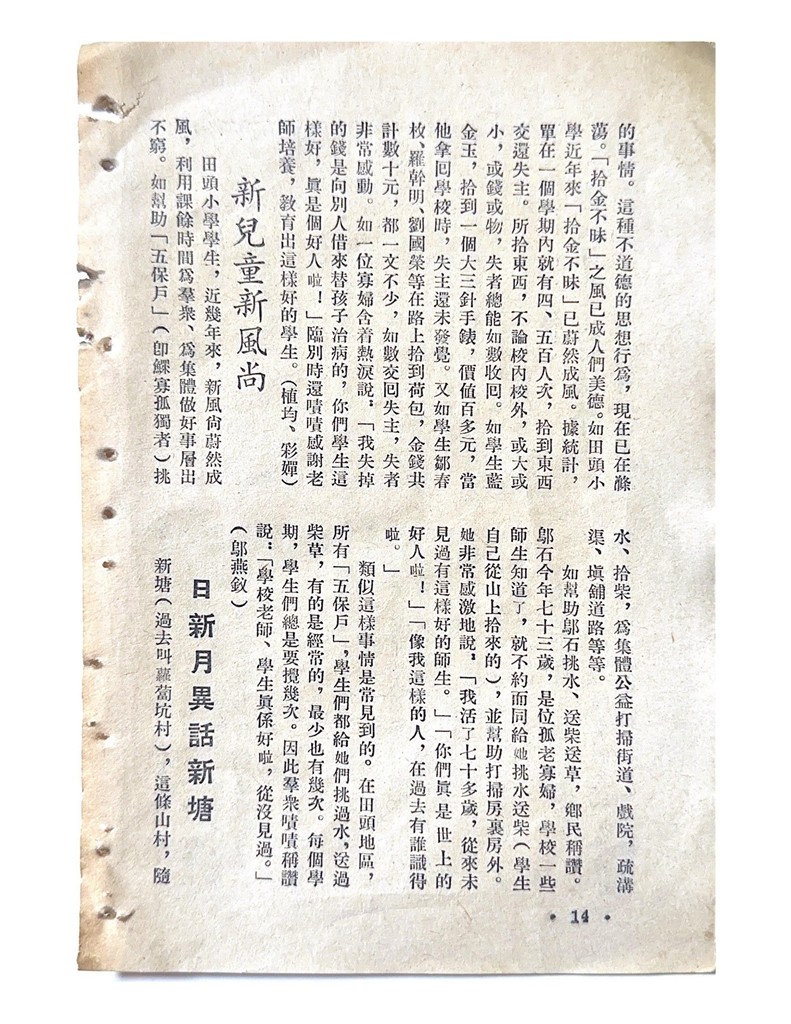 的事情。這種不道德的思想行爲，現在已在滌
蕩。「拾金不昧」之風已成人們美德。如田頭小
學近年來「拾金不昧」已蔚然成風。據統計，
單在一個學期內就有四、五百人次，拾到東西
交還失主。所拾東西，不論校內校外，或大或
小，或錢或物，失者總能如數收回。如學生藍
金玉，拾到一個大三針手錶，價值百多元，當
他拿回學校時，失主還未發覺。又如學生鄒春
枚、羅幹明、劉國榮等在路上拾到荷包，金錢共
計數十元，都一文不少，如數交回失主，失者
非常感動。如一位寡婦含着熱淚說：「我失掉
的錢是向別人借來替孩子治病的，你們學生這
樣好，眞是個好人啦！」臨別時還嘖嘖感謝老
師培養，教育出這樣好的學生。（植均、彩嬋）
新兒童新風尚
田頭小學學生，近幾年來，新風尙蔚然成
風，利用課餘時間爲羣衆、爲集體做好事層出
不窮。如幫助「五保戶」（卽鰥寡孤獨者）挑
水、拾柴，爲集體公益打掃街道、戲院，疏溝
渠、塡舖道路等等。
如幫助鄔石挑水、送柴送草，鄉民稱讚。
鄔石今年七十三歲，是位孤老寡婦，學校一些
師生知道了，就不約而同給她挑水送柴（學生
自己從山上拾來的），並幫助打掃房裏房外。
她非常感激地說：「我活了七十多歲，從來未
見過有這樣好的師生。」「你們眞是世上的
好人啦！」「像我這樣的人，在過去有誰識得
啦。」
類似這樣事情是常見到的。在田頭地區，
所有「五保戶」，學生們都給她們挑過水，送過
柴草，有的是經常的，最少也有幾次。每個學
期，學生們總是要攪幾次。因此羣衆嘖嘖稱讚
說：「學校老師、學生眞係好啦，從沒見過。」
（鄔燕釹）
日新月異話新塘
新塘（過去叫蘿蔔坑村），這條山村，隨
• 14 •